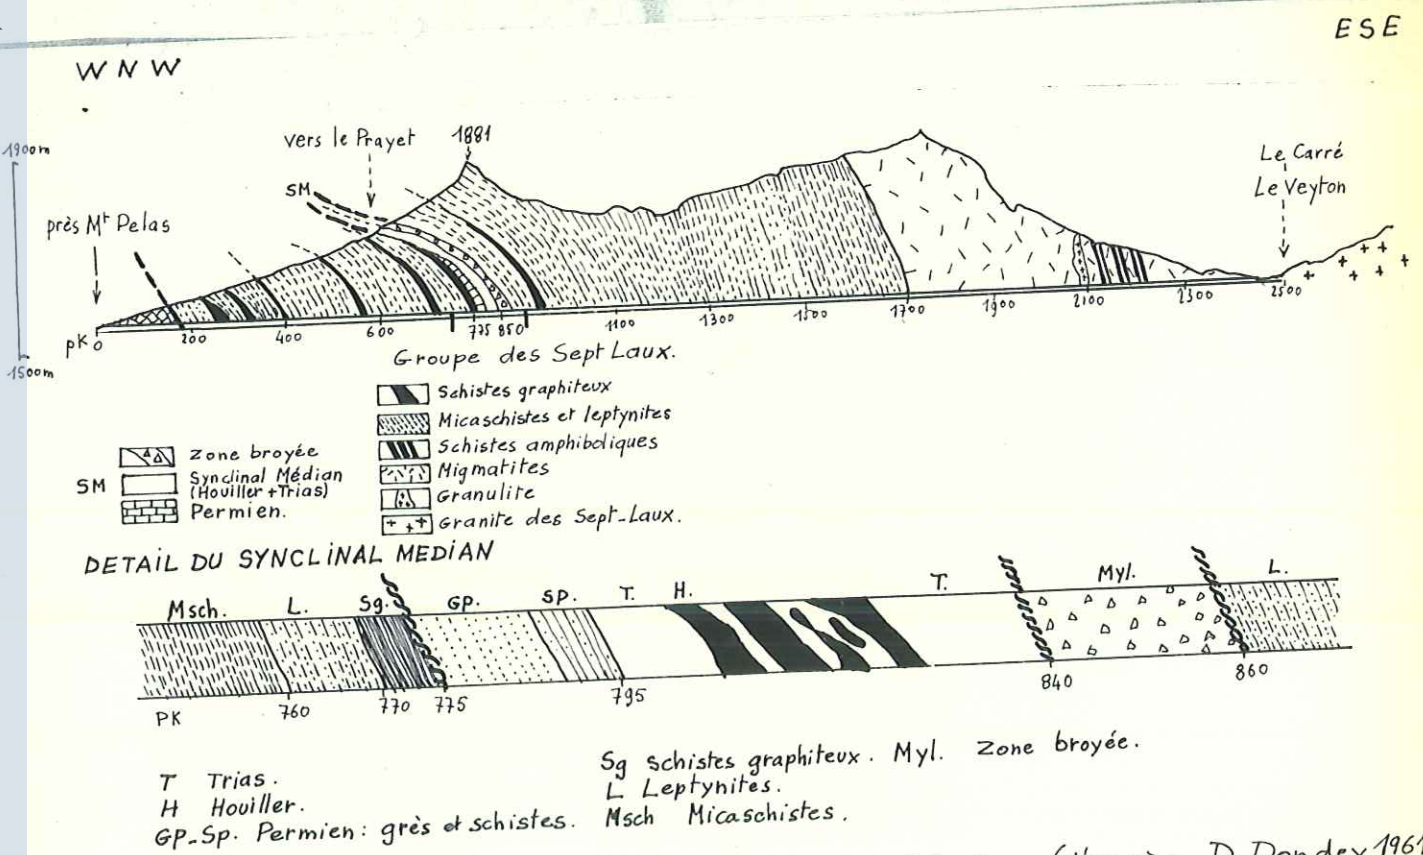 ESE
WNW
vers le Prayet
1881
1900m
Le Carré
Le Veyton
SM
près Mt Pelas
PK 0 200 400 600 775 850 1100 1300 1500 1700 1900 2100 2300 2500
1500m
Groupe des Sept Laux.
Schistes graphiteux
Micaschistes et leptynites
Schistes amphiboliques
Migmatites
Granulite
Granite des Sept-Laux.
Zone broyée
SM Synclinal Médian
(Houiller+Trias)
Permien.
DETAIL DU SYNCLINAL MEDIAN
Msch. L. Sg. GP. SP. T. H. T. Myl. L.
PK 760 770 775 795 840 860
T Trias.
H Houiller.
GP-Sp. Permien: grès et schistes.
Sg schistes graphiteux. Myl. Zone broyée.
L Leptynites.
Msch Micaschistes.
D. Dondey 1961